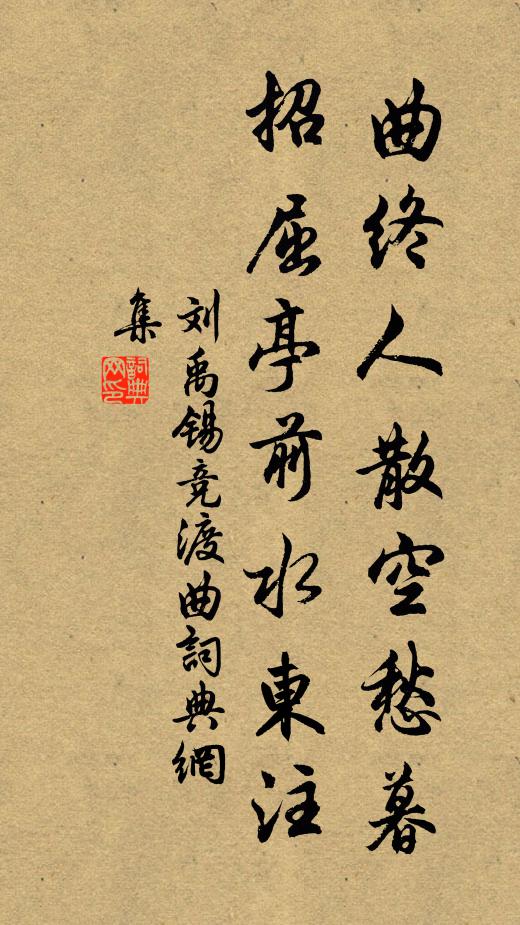 曲终人散空愁暮
招屈亭前水東注
刘禹锡竞渡曲詞典網
集
詞典网印